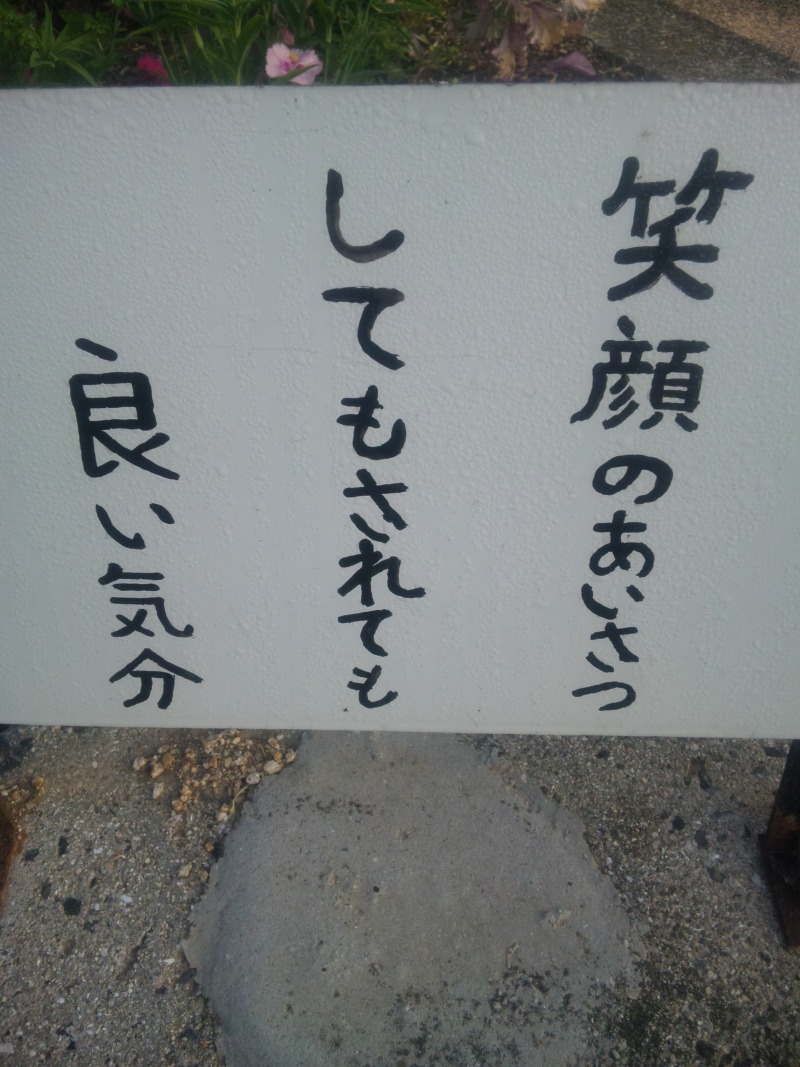 笑顔のあいさつ
してもされても
良い気分